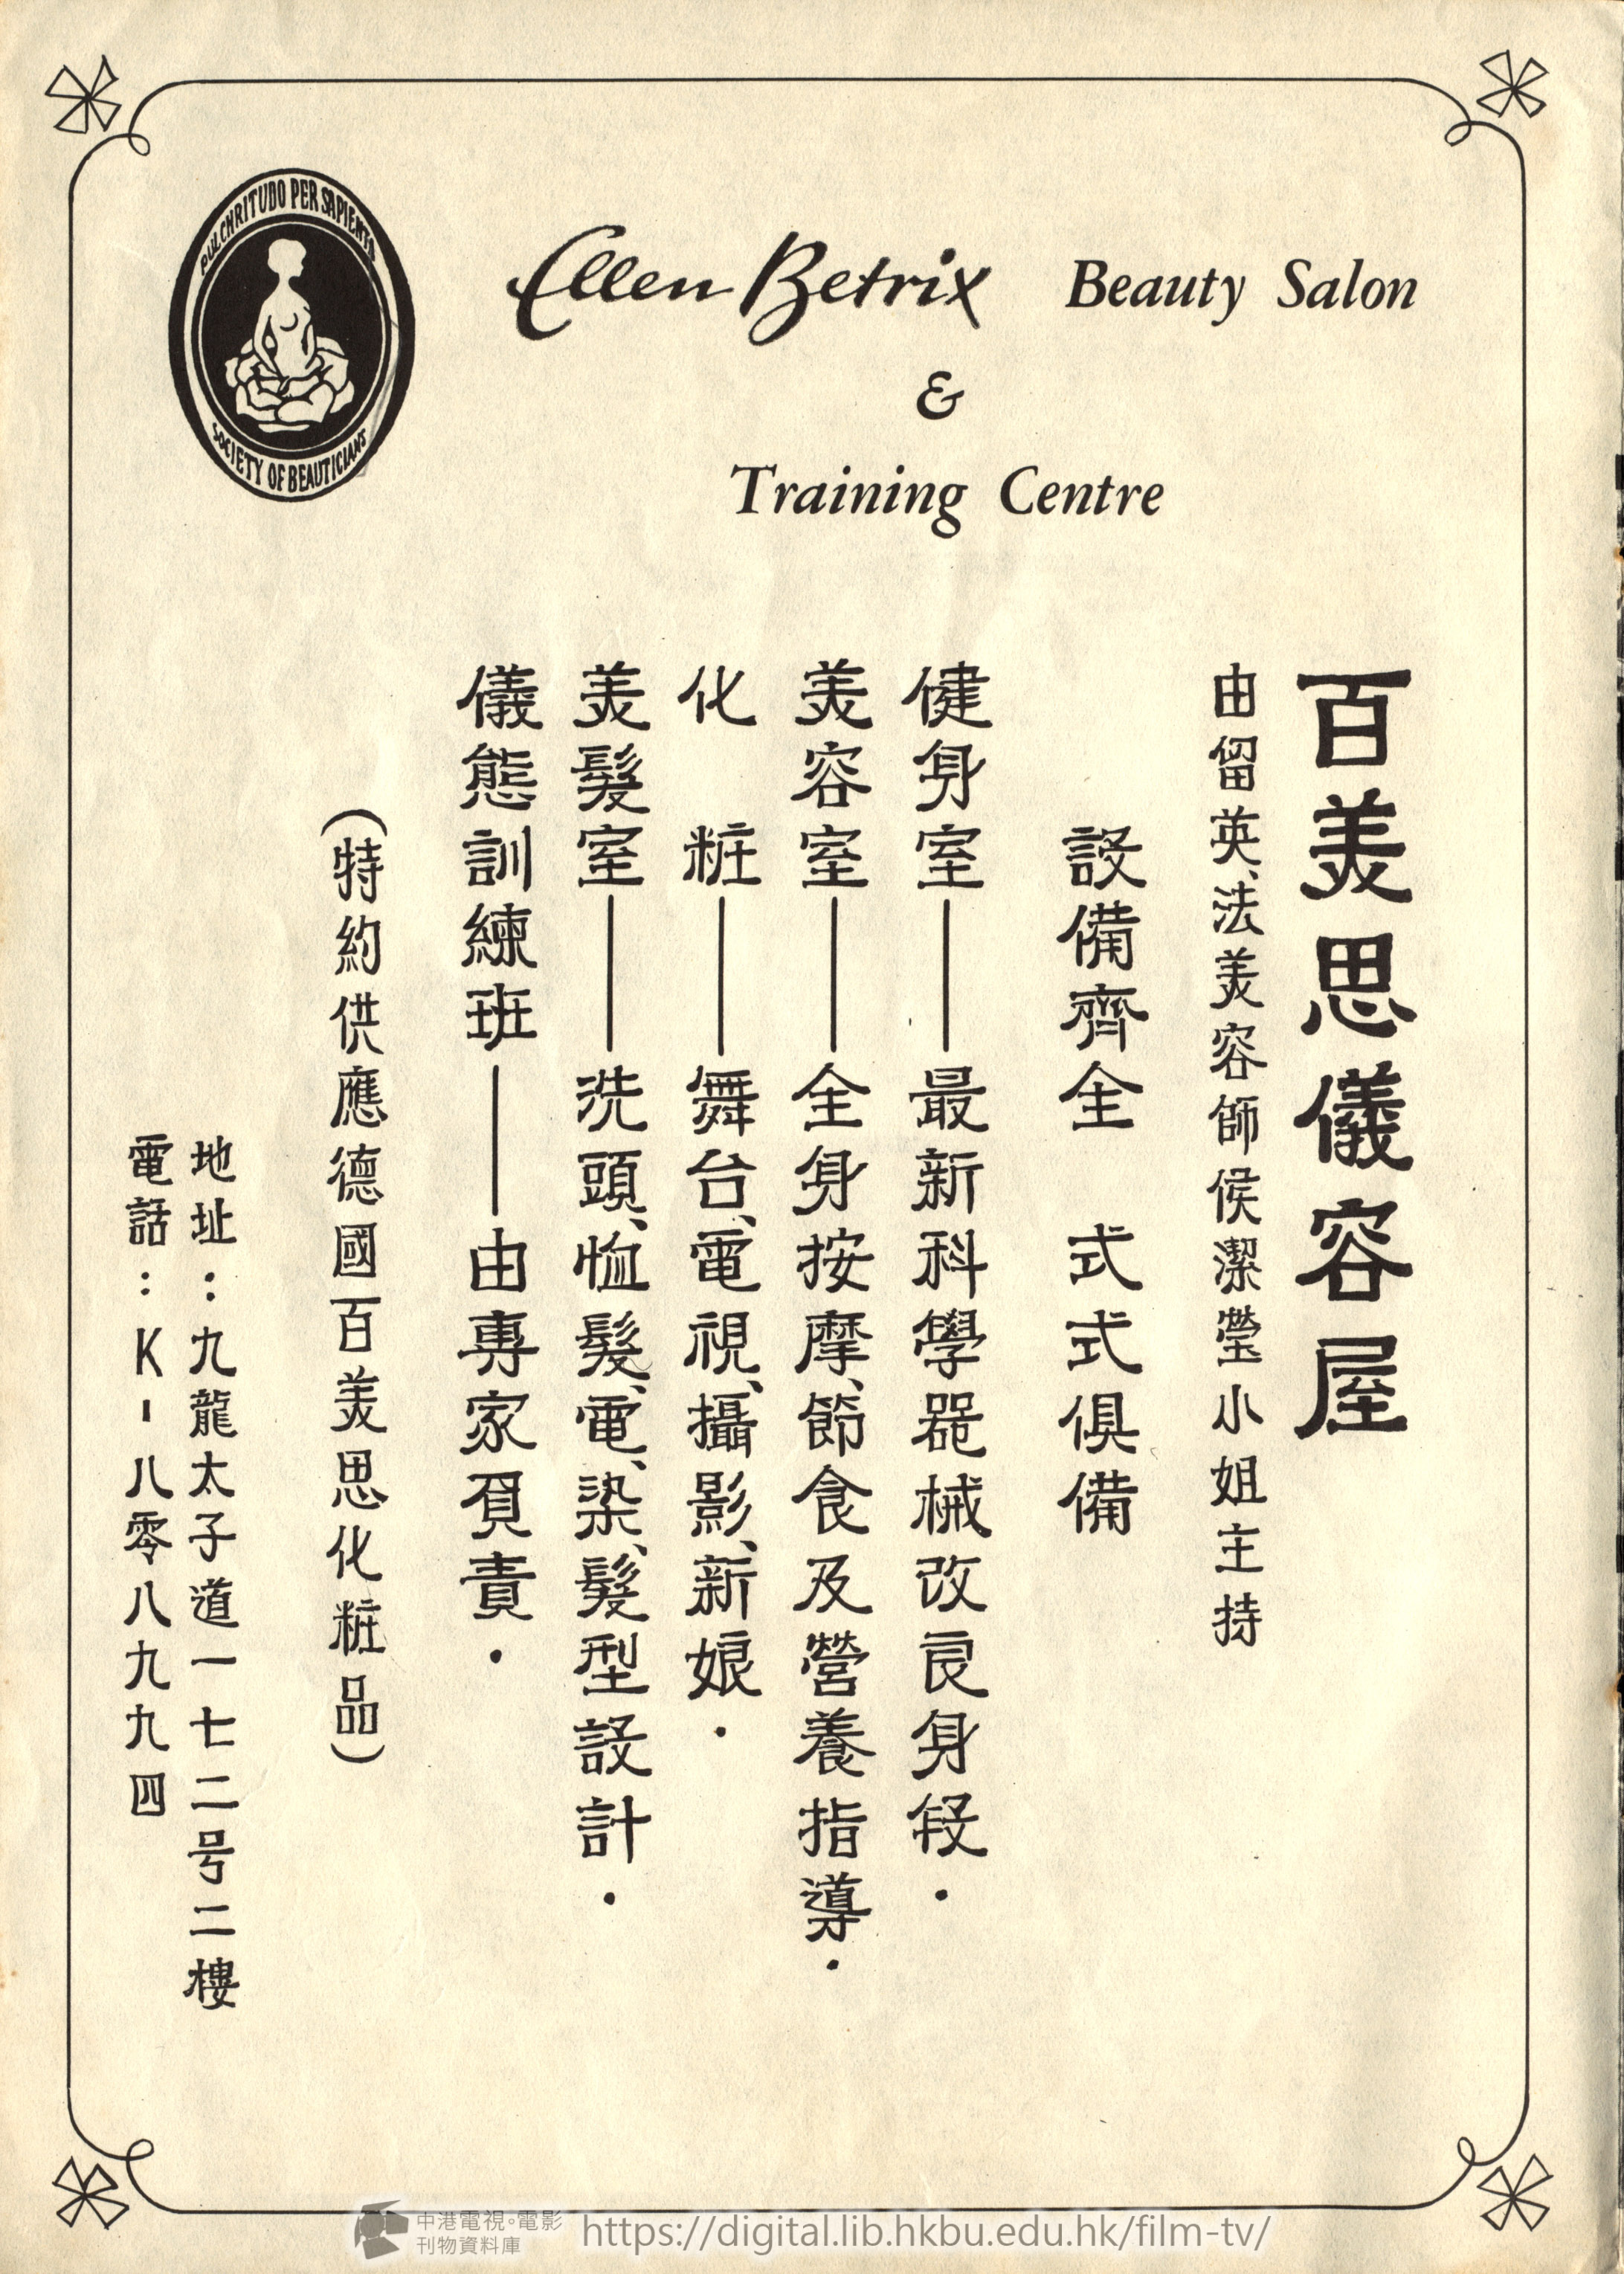 PULCHRITUDO PER SAPIENTIA
SOCIETY OF BEAUTICIANS
Ellen Betrix Beauty Salon
&
Training Centre
百美思儀容屋
由留英、法美容師侯潔瑩小姐主持
設備齊全　式式俱備
健身室——最新科學器械改良身段．
美容室——全身按摩、節食及營養指導．
化　粧——舞台、電視、攝影、新娘．
美髮室——洗頭、恤髮、電、染、髮型設計．
儀態訓練班——由專家負責．
(特約供應德國百美思化粧品)
地址：九龍太子道一七二号二樓
電話：K-八零八九九四
中港電視。電影
刊物資料庫
https://digital.lib.hkbu.edu.hk/film-tv/